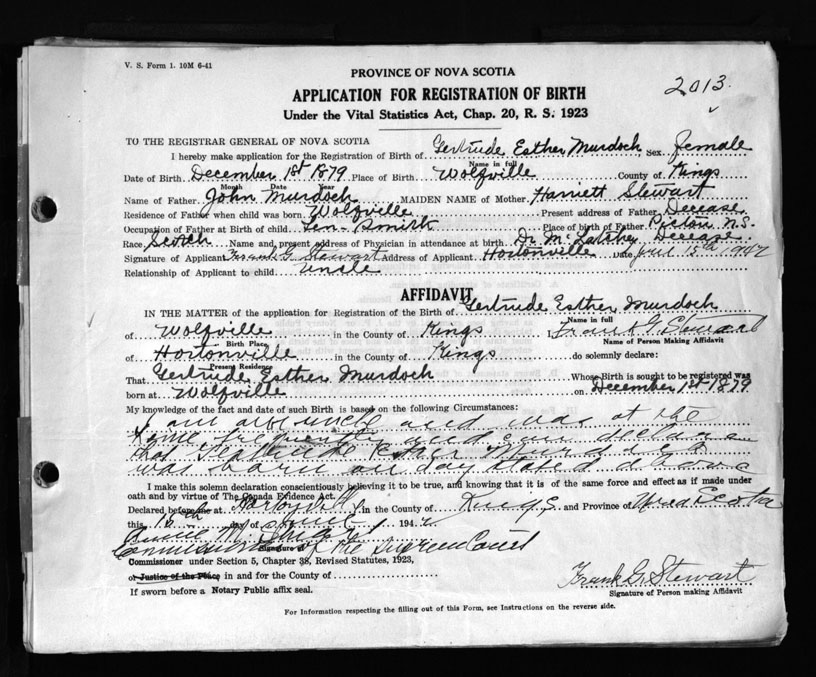 V. S. Form 1. 10M 6-41
2013
PROVINCE OF NOVA SCOTIA
APPLICATION FOR REGISTRATION OF BIRTH
Under the Vital Statistics Act, Chap. 20, R. S. 1923
TO THE REGISTRAR GENERAL OF NOVA SCOTIA
I hereby make application for the Registration of Birth of Gertrude Esther Murdoch, Sex female
Name in full
Date of Birth December 1st 1879 Place of Birth Wolfville County of Kings
Month Date Year
Name of Father John Murdoch MAIDEN NAME of Mother Harriett Stewart
Residence of Father when child was born Wolfville Present address of Father Decease
Occupation of Father at Birth of child Place of birth of Father Pictou N.S.
Race Scotch Name and present address of Physician in attendance at birth Dr Decease
Signature of Applicant Frank G. Stewart Address of Applicant Hortonville Date 15th 1942
Relationship of Applicant to child Uncle
AFFIDAVIT
IN THE MATTER of the application for the Registration of Birth of Gertrude Esther Murdoch
Name in full
of Wolfville in the County of Kings I, Frank G. Stewart
Birth Place
Name of Person Making Affidavit
of Hortonville in the County of Kings do solemnly declare:
Present Residence
That Gertrude Esther Murdoch Whose Birth is sought to be registered was
born at Wolfville on December 1st 1879
My knowledge of the fact and date of such Birth is based on the following Circumstances:
I am uncle and was at the
home frequently and can declare
that Gertrude Esther Murdoch
was born on day stated above
I make this solemn declaration conscientiously believing it to be true, and knowing that it is of the same force and effect as if made under
oath and by virtue of The Canada Evidence Act.
Declared before at Hortonville in the County of Kings and Province of Nova Scotia
this 15th day of 1942
Commissioner of the Supreme Court
Signature of
Commissioner under Section 5, Chapter 38, Revised Statutes, 1923,
or Justice of the Peace in and for the County of
If sworn before a Notary Public affix seal.
Frank G. Stewart
Signature of Person making Affidavit
For Information respecting the filling out of this Form, see Instructions on the reverse side.